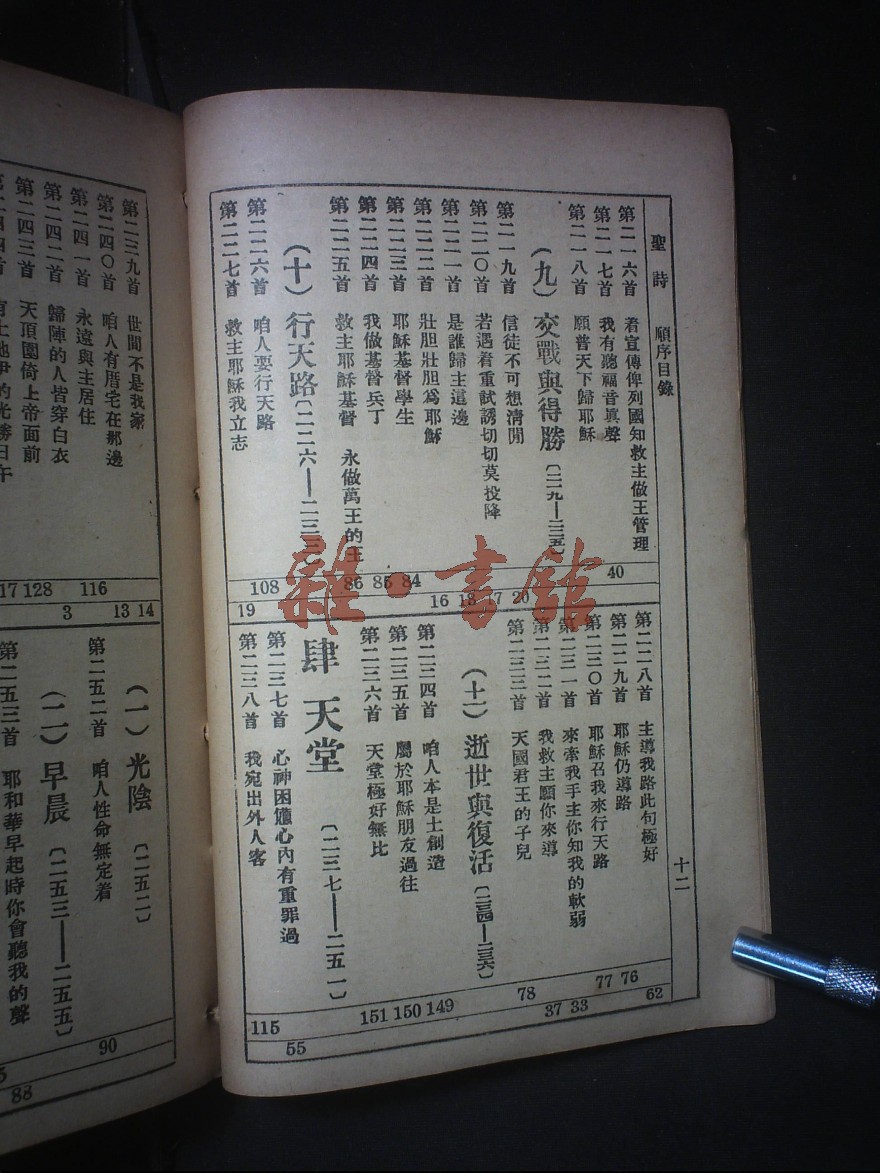 聖詩 順序目錄
十二
第二一六首 着宣傳俾列國知救主做王管理
第二一七首 我有聽福音眞聲 40
第二一八首 願普天下歸耶穌
（九）交戰與得勝〔二一九—二二五〕
第二一九首 信徒不可想清閒 20
第二二〇首 若遇着重試誘切切莫投降 17
第二二一首 是誰歸主這邊 18
第二二二首 壯胆壯胆爲耶穌 16
第二二三首 耶穌基督學生 84
第二二四首 我做基督兵丁 85
第二二五首 救主耶穌基督 永做萬王的王 86
（十）行天路〔二二六—二三三〕
第二二六首 咱人要行天路 108
第二二七首 救主耶穌我立志 19
第二二八首 主導我路此句極好 62
第二二九首 耶穌仍導路 76
第二三〇首 耶穌召我來行天路 77
第二三一首 來牽我手主你知我的軟弱 33
第二三二首 我救主願你來導 37
第二三三首 天國君王的子兒 78
（十一）逝世與復活〔二三四—二三六〕
第二三四首 咱人本是土創造 149
第二三五首 屬於耶穌朋友過往 150
第二三六首 天堂極好無比 151
肆 天堂〔二三七—二五一〕
第二三七首 心神困憊心內有重罪過 55
第二三八首 我宛出外人客 115
第二三九首 世間不是我家 14
第二四〇首 咱人有厝宅在那邊 13
第二四一首 永遠與主居住 116
第二四二首 歸陣的人皆穿白衣 3
第二四三首 天頂團倚上帝面前 128
第二四四首 有土地伊的光勝日午 17
（一）光陰〔二五二〕
第二五二首 咱人性命無定着 90
（二）早晨〔二五三—二五五〕
第二五三首 耶和華早起時你會聽我的聲 88
雜·書館